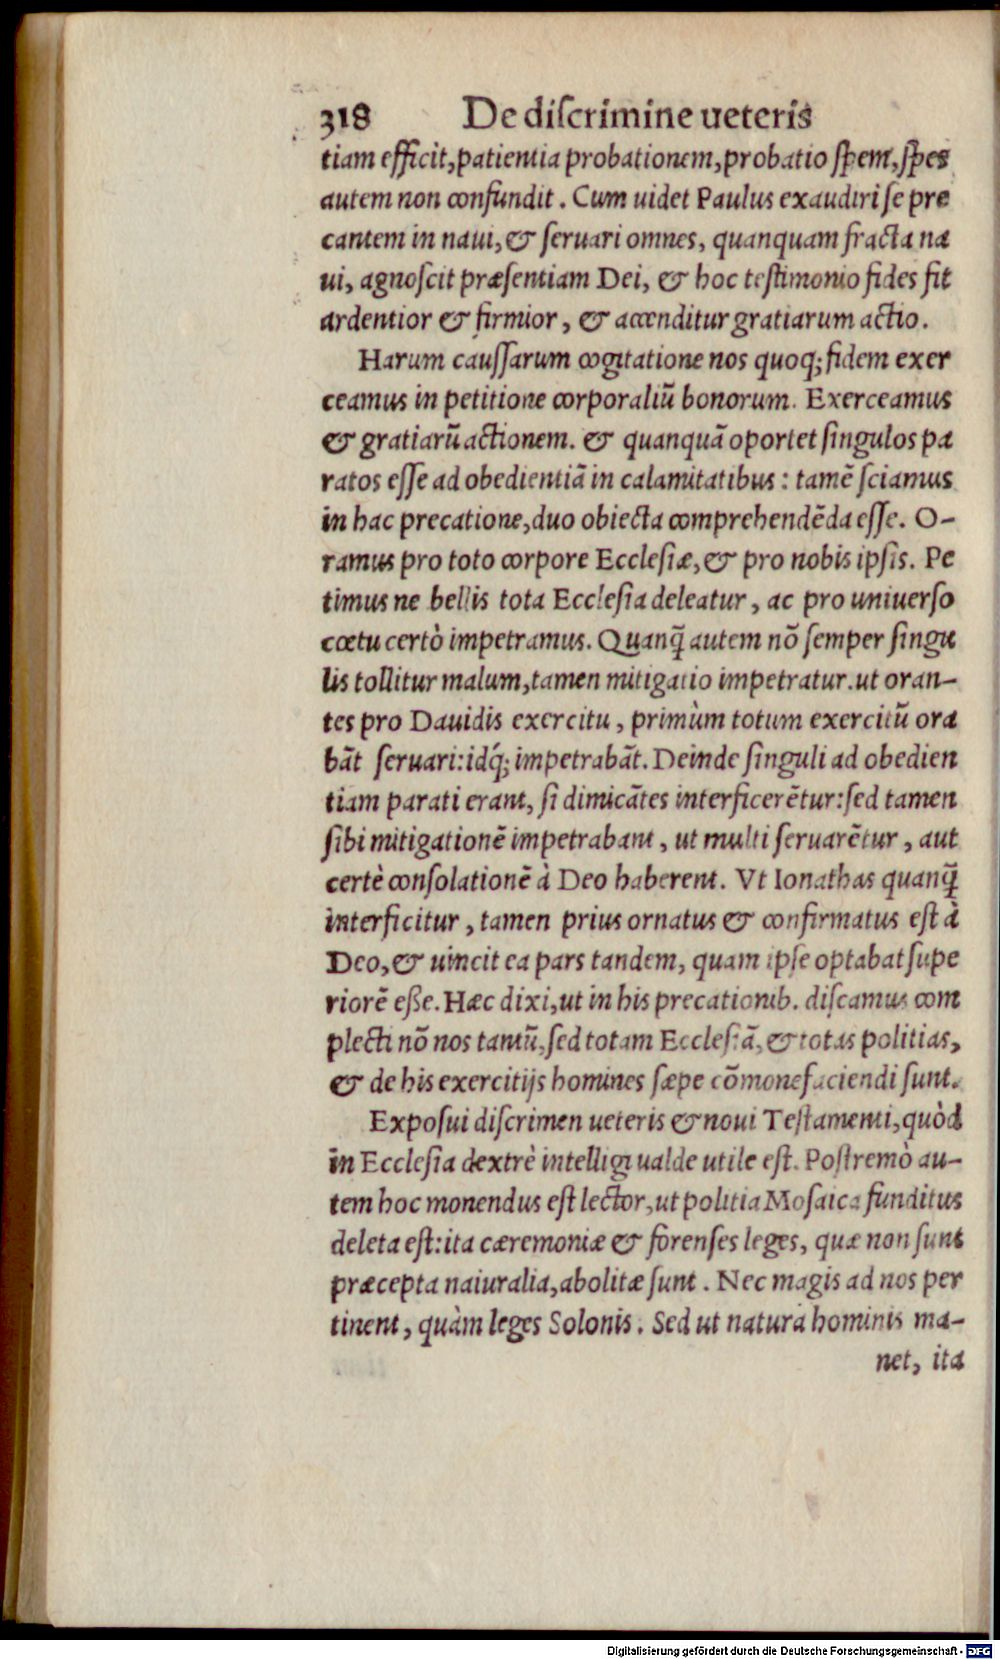 318 De diſcrimine ueteris
tiam efficit, patientia probationem, probatio ſpem, ſpes
autem non confundit. Cum uidet Paulus exaudiri ſe pre
cantem in naui, & ſeruari omnes, quanquam fracta na
ui, agnoſcit præſentiam Dei, & hoc teſtimonio fides fit
ardentior & firmior, & accenditur gratiarum actio.
Harum cauſſarum cogitatione nos quoq; fidem exer
ceamus in petitione corporaliũ bonorum. Exerceamus
& gratiarũ actionem. & quanquã oportet ſingulos pa
ratos eſſe ad obedientiã in calamitatibus: tamẽ ſciamus
in hac precatione, duo obiecta comprehendẽda eſſe. O-
ramus pro toto corpore Eccleſiæ, & pro nobis ipſis. Pe
timus ne bellis tota Eccleſia deleatur, ac pro uniuerſo
cœtu certò impetramus. Quanq̃ autem nõ ſemper ſingu
lis tollitur malum, tamen mitigatio impetratur. ut oran-
tes pro Dauidis exercitu, primùm totum exercitũ ora
bãt ſeruari: idq́; impetrabãt. Deinde ſinguli ad obedien
tiam parati erant, ſi dimicãtes interficerẽtur: ſed tamen
ſibi mitigationẽ impetrabant, ut multi ſeruarẽtur, aut
certè conſolationẽ à Deo haberent. Vt Ionathas quanq̃
interficitur, tamen prius ornatus & confirmatus eſt à
Deo, & uincit ea pars tandem, quam ipſe optabat ſupe
riorẽ eße. Hæc dixi, ut in his precationib. diſcamus com
plecti nõ nos tantũ, ſed totam Eccleſiã, & totas politias,
& de his exercitijs homines ſæpe cõmonefaciendi ſunt.
Expoſui diſcrimen ueteris & noui Teſtamenti, quòd
in Eccleſia dextrè intelligi ualde utile eſt. Poſtremò au-
tem hoc monendus eſt lector, ut politia Moſaica funditus
deleta eſt: ita cæremoniæ & forenſes leges, quæ non ſunt
præcepta naturalia, abolitæ ſunt. Nec magis ad nos per
tinent, quàm leges Solonis. Sed ut natura hominis ma-
net, ita
Digitalisierung gefördert durch die Deutsche Forschungsgemeinschaft - DFG